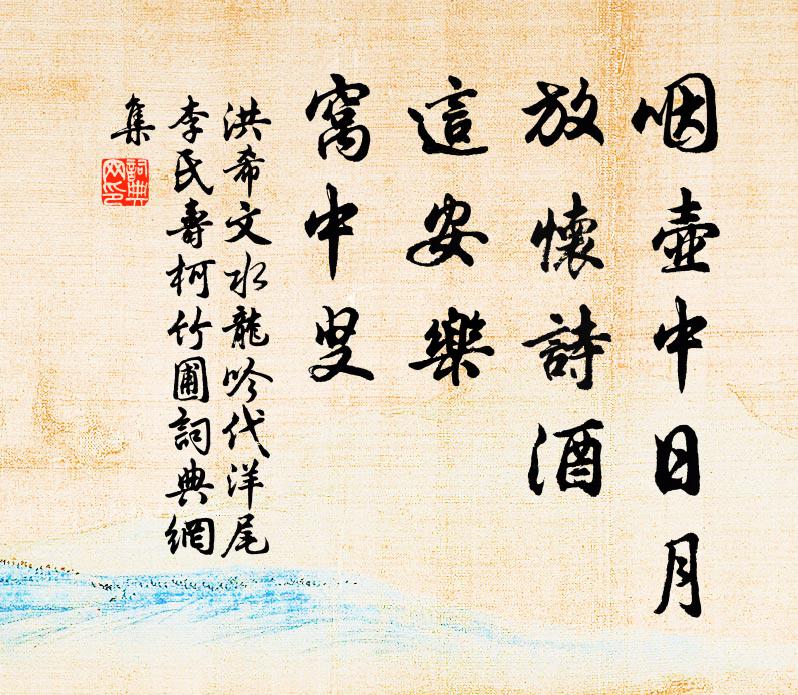 咽壺中日月
放懷詩酒
這安樂
窩中叟
洪希文水龍吟代洋尾
李氏壽柯竹圃詞典網
集
詞典
网印